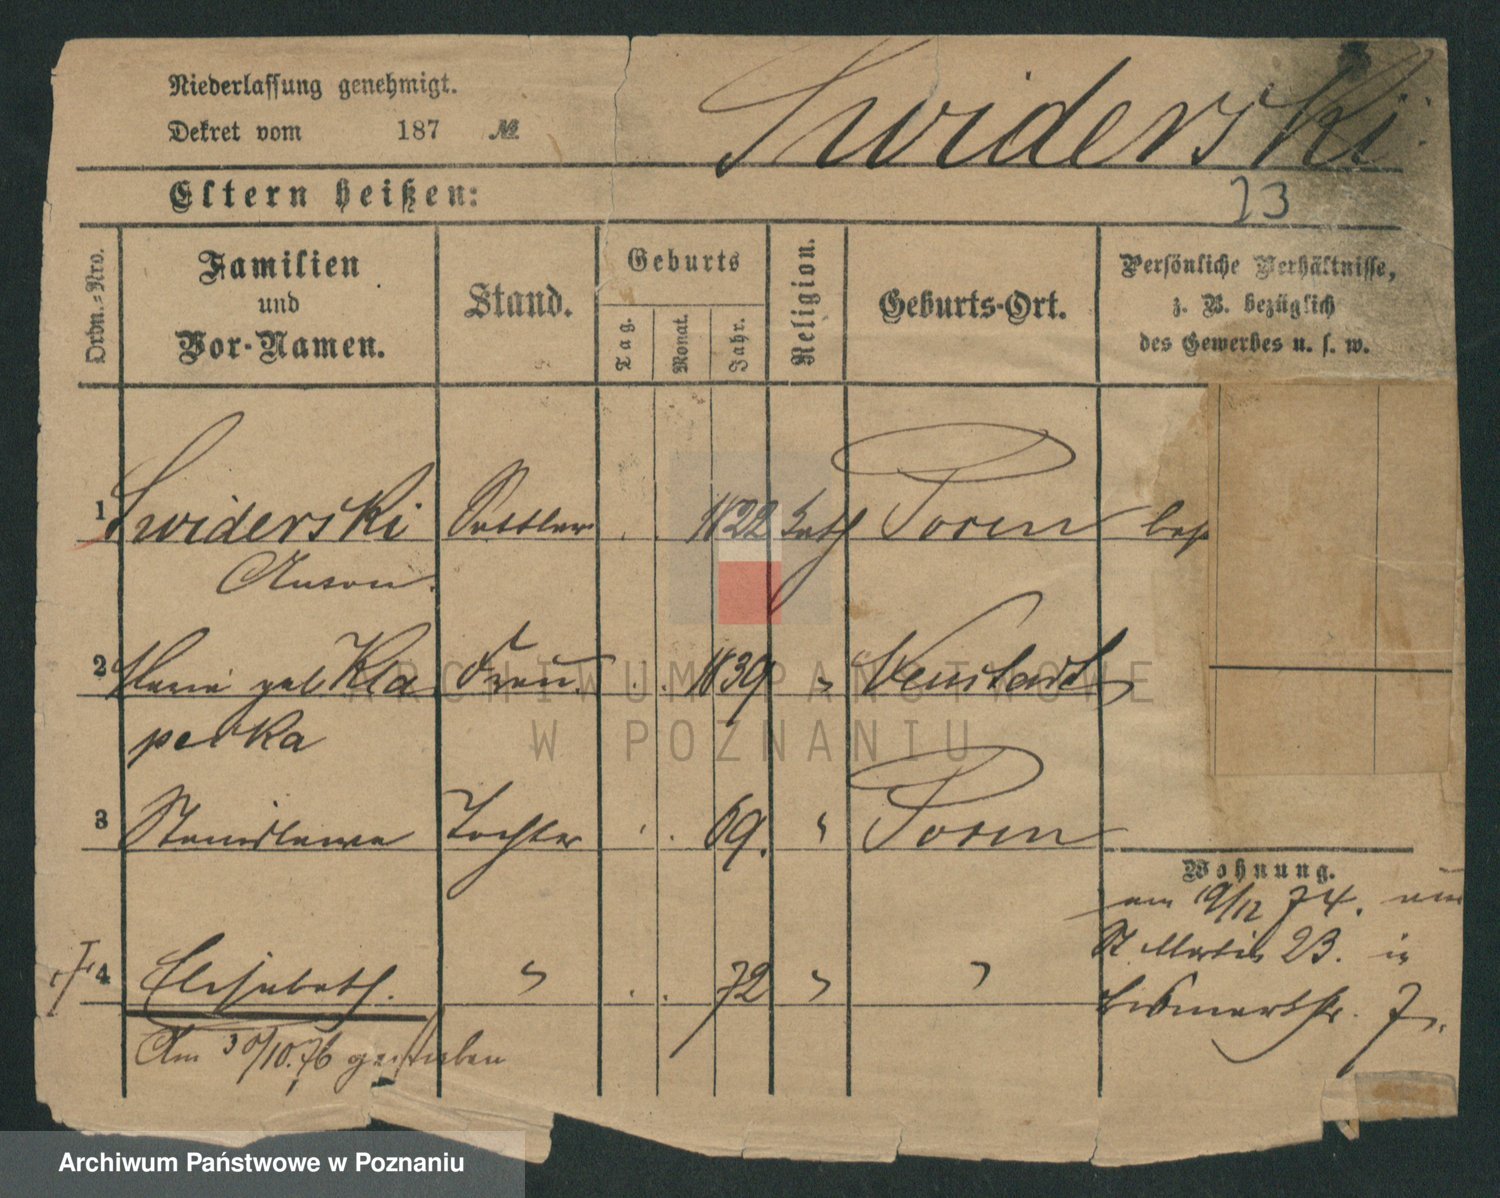 Niederlassung genehmigt.
Dekret vom 187 №
Swiderski
Eltern heißen:
23
Ordn.=Nro.
Familien
und
Vor-Namen.
Stand.
Geburts
Tag.
Monat.
Jahr.
Religion.
Geburts-Ort.
Persönliche Verhältnisse,
z. B. bezüglich
des Gewerbes u. s. w.
1 Swiderski Sattler 1822 kath Posen
2 Maria geb Kla Frau 1839 " Neustadt
perka
3 Stanislawa Tochter 69. " Posen
Wohnung.
am 19/12 74. von
St. Martin 23. in
Bismarckstr. 7.
4 Elisabeth. " 72 " "
Am 30/10.76 gestorben
Archiwum Państwowe
w Poznaniu
Archiwum Państwowe w Poznaniu